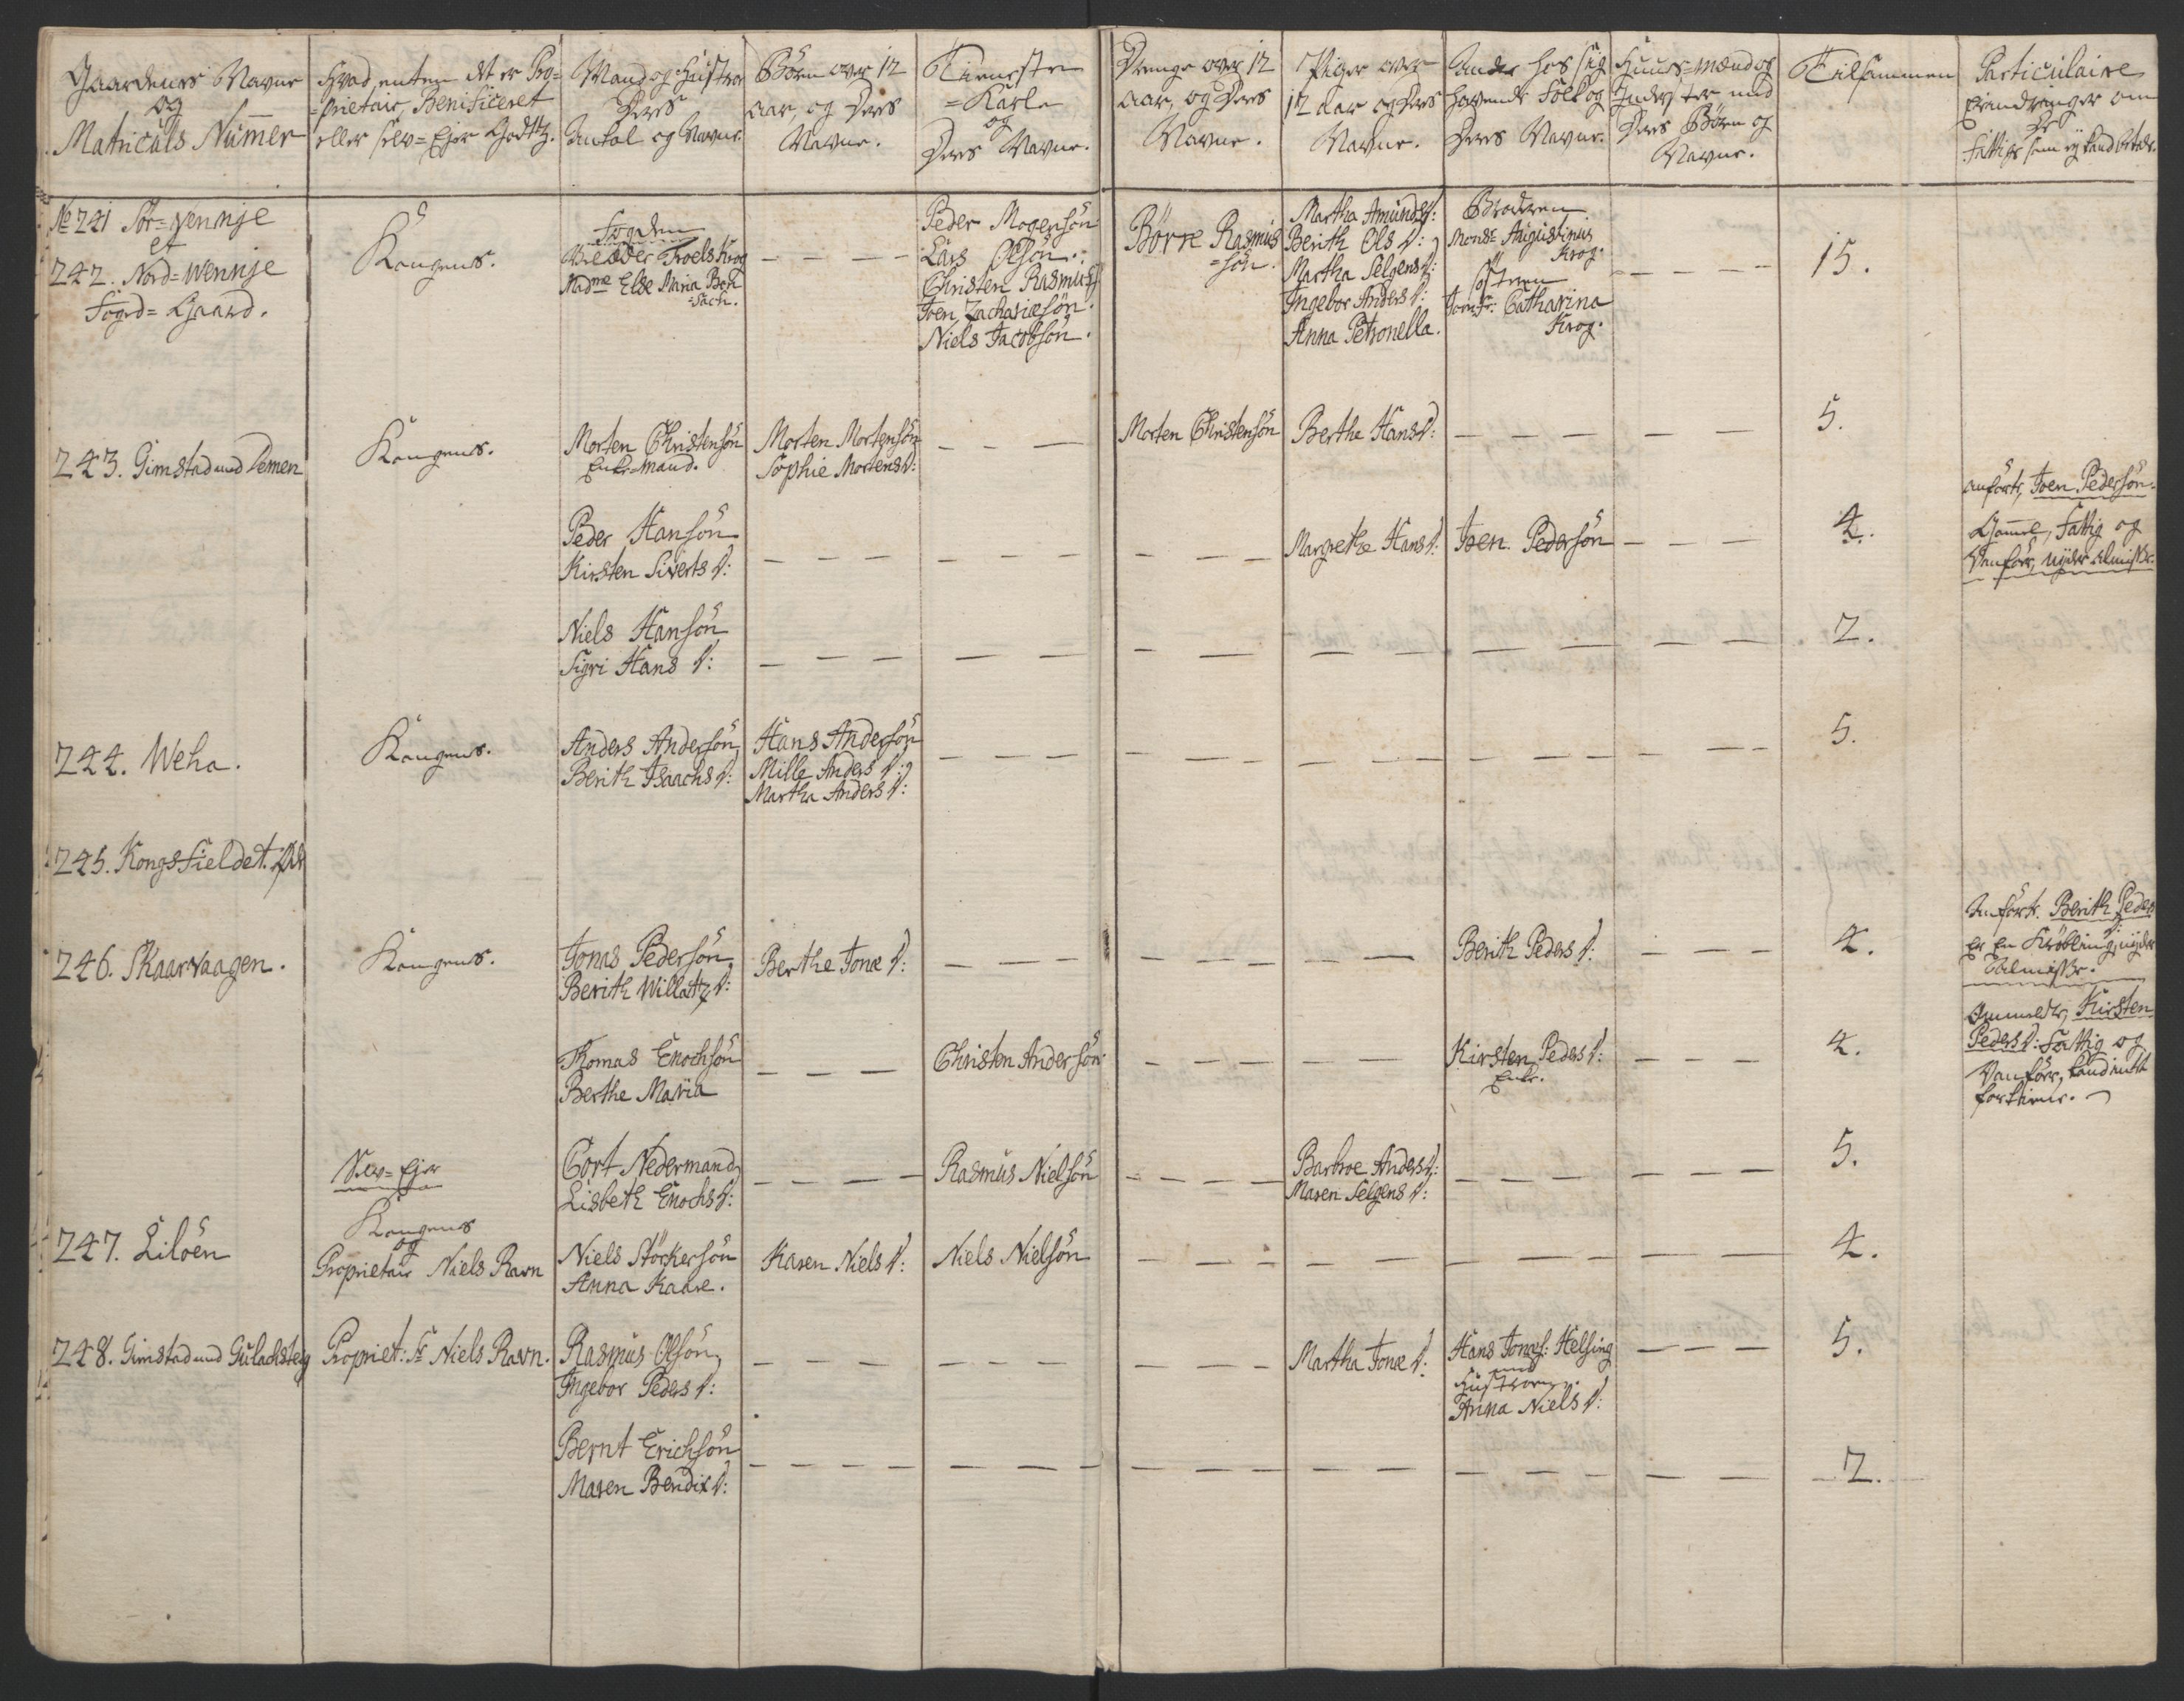 Gaardenes Navne
og
Matriculs Nummer
Hvad, enten det er Pro=
=prietair, Benificeret
eller selv=Ejer Godtz.
Mand og Hustru
Deres
Antal og Navne.
Börn over 12
Aar, og Deres
Navne.
Tieneste
=Karle
og
Deres Navne.
Drenge over 12
Aar, og Deres
Navne.
Piger over
12 Aar og Deres
Navne.
Andre hos sig
havende Folk og
Deres Navne.
Huus=Mænd og
Inderster med
Deres Börn og
Navne.
Tilsammen
Particulaire
Erindringer om
De
Fattige som ej kand betale.
No 241 Sör=Wennje
et
242. Nord=Wennje
Fogd=Gaard.
Kongens.
Fogden
Peder Troels Krog
Madme Else Maria Bch
=sach.
Peder Mogensön
Lars Olsön.
Christen Rasmus
Joen Zachariæsön.
Niels Jacobsön.
Börre Rasmus
=sön.
Martha Amunds D:
Berith Ols D:
Martha Selgens D:
Ingebor Anders D:
Anna Petronella.
Broderen
Monsr Augustinus
Krog.
Söstren
Jomfr. Catharina
Krog.
15.
243. Gimstad und Demen
Kongens.
Morten Christensön
Enke=Mand.
Morten Mortensön
Sophie Mortens D:
Morten Christensön
Berthe Hans D:
5.
Peder Hansön
Kirsten Siverts D:
Margrethe Hans D:
Joen Pedersön
4.
Anförte, Joen Pedersön
Gammel, Fattig og
Vanför, nyder Almisse.
Niels Hansön
Sigri Hans D:
2.
244. Weha.
Kongens.
Anders Andersön
Berith Isaachs D:
Hans Andersön
Mille Anders D:
Martha Anders D:
5.
245. Kongsfieldet. Öde
246. Skaarvaagen.
Kongens.
Jonas Pedersön
Berith Willatz D:
Berthe Jonæ D:
Berith Peders D:
4.
Anförte Berith Peders
D:
Er En Kröbling, nyder
Almisse.
Thomas Enochsön
Berthe Maria
Christen Andersön
Kirsten Peders D:
Enke.
4.
Ommeldte, Kirsten
Peders D: Fattig og
Vanför, kand intet
fortiene.
Selv=Ejer
Cort Nedermand
Lisbeth Enochs D:
Rasmus Nielsön
Barbroe Anders D:
Maren Selgens D:
5.
247. Liloën
Kongens
og
Proprietair Niels Ravn
Niels Störkersön
Anna Kaare.
Karen Niels D:
Niels Nielsön
4.
248. Gimstad und Gulachsteig
Propriet: Sr Niels Ravn.
Rasmus Olsön,
Ingebor Peders D:
Martha Jonæ D:
Hans Jonæs: Helsing
med
Hustroe
Anna Niels D:
5.
Bernt Erichsön
Maren Bendix D:
2.